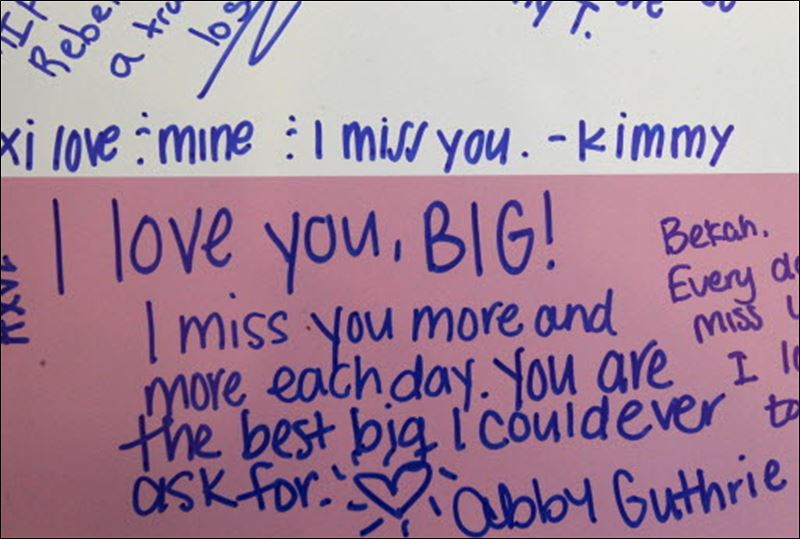 Rebe
a tru
los
my T.
xi love : mine : I miss you. - kimmy
I love you, BIG!
I miss you more and
more each day. You are
the best big I could ever
ask for. ♡ Abby Guthrie
Bekah,
Every da
miss u
I lo
to